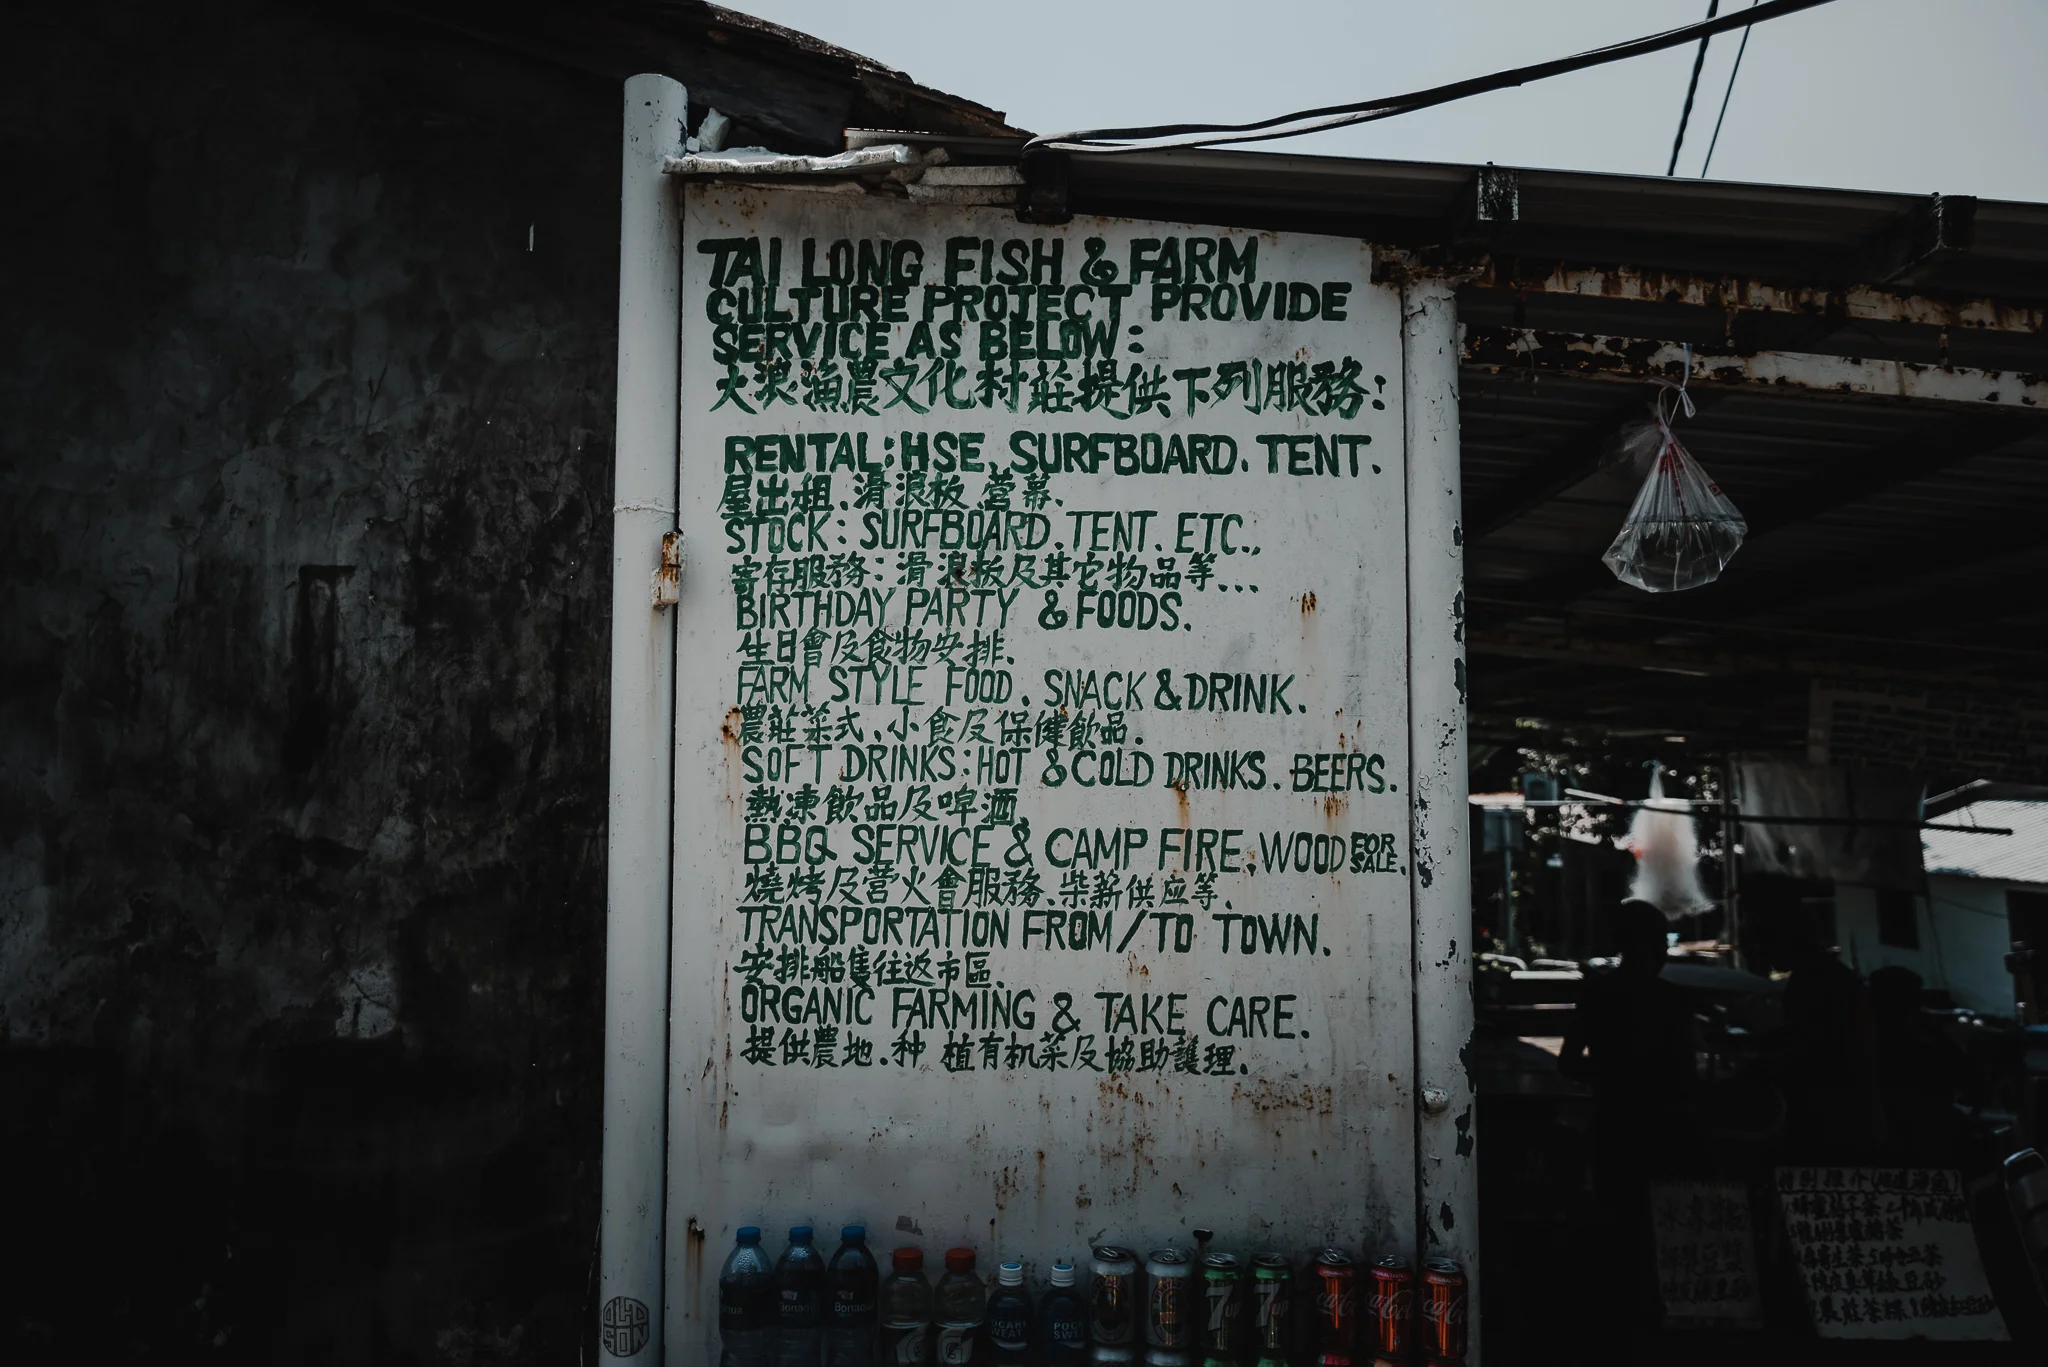 TAI LONG FISH & FARM
CULTURE PROJECT PROVIDE
SERVICE AS BELOW:
大浪漁農文化村莊提供下列服務:
RENTAL: HSE. SURFBOARD. TENT.
屋出租.滑浪板.營幕.
STOCK: SURFBOARD. TENT. ETC.,
寄存服務:滑浪板及其它物品等...
BIRTHDAY PARTY & FOODS.
生日會及食物安排.
FARM STYLE FOOD. SNACK & DRINK.
農莊菜式.小食及保健飲品.
SOFT DRINKS: HOT & COLD DRINKS. BEERS.
熱凍飲品及啤酒.
BBQ SERVICE & CAMP FIRE. WOOD FOR SALE.
燒烤及營火會服務.柴薪供应等.
TRANSPORTATION FROM/TO TOWN.
安排船隻往返市區.
ORGANIC FARMING & TAKE CARE.
提供農地.种植有机菜及協助護理.
Bonaqua
POCARI SWEAT
7up
7up
Coca-Cola
Coca-Cola
Coca-Cola
OLD SON